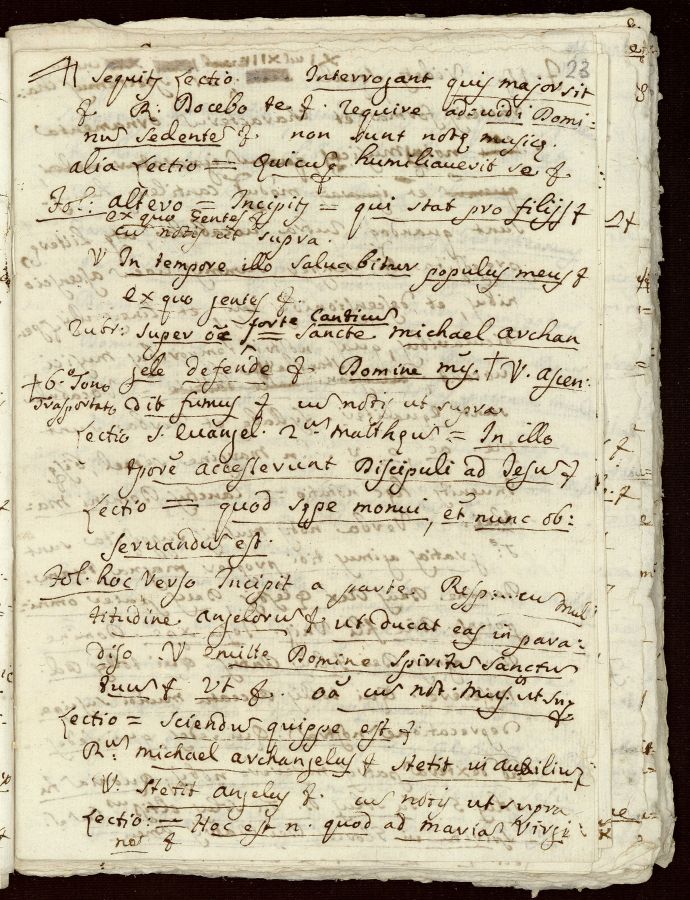 23
sequitʒ Lectio. Interrogant quis major sit
& R: Docebo te &. require ad: vidi Domi=
nuʒ sedenteʒ &. non sunt notę musicę.
alia Lectio = quicuʒq humiliaverit se &
Fol: altero = Incipitʒ = qui stat pro filijs &
ex quo gentes &
cū notis ut supra.
V In tempore illo salvabitur populus meus &
ex quo gentes &.
rubr: super oē forte Canticuʒ = sancte michael archan
gele defende &. Domine mʒ. † V. ascen:
† 6.º Tono
Trasportato
dit fumus & cuʒ notis ut supra
Lectio S. Evangel. 2.uʒ matthęuʒ = In illo
tporē accesserunt Discipuli ad Jesuʒ &
Lectio = quod sępe monui, et nunc ob:
servanduʒ est.
Fol. hoc verso Incipit a parte. Resp:... cuʒ mul
titudine angelorūʒ &. ut ducat eas in para=
diso V mitte Domine spirituʒ sanctuʒ
tuuʒ & Ut &. oā cuʒ not: mus. ut sup
Lectio = scienduʒ quippe est &
R.uʒ michael archangelus & stetit in auxiliuʒ
V. stetit angelus &. cuʒ notis ut supra
Lectio: = Hoc est n. quod ad mariaʒ Virgi
neʒ &